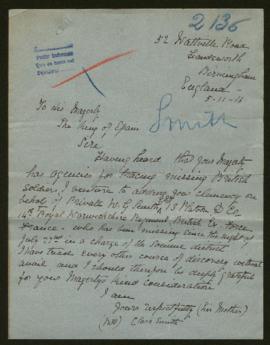 2136
52 Wattville Road
Handsworth
Birmingham
England
5-11-16
Smith
To His Majesty
The King of Spain
Sire
Having heard that your Majesty
has agencies for tracing missing British
soldiers, I venture to address your clemency on
behalf of Private W. G. Smith
14th Royal Warwickshire Regiment, British Ex. Force
France - who has been missing since the night of
July 22nd in a charge of the Somme district
I have tried every other source of discovery without
avail and I should therefore be deeply grateful
for your Majesty's kind consideration
I am
Yours respectfully (his Mother)
Clara Smith